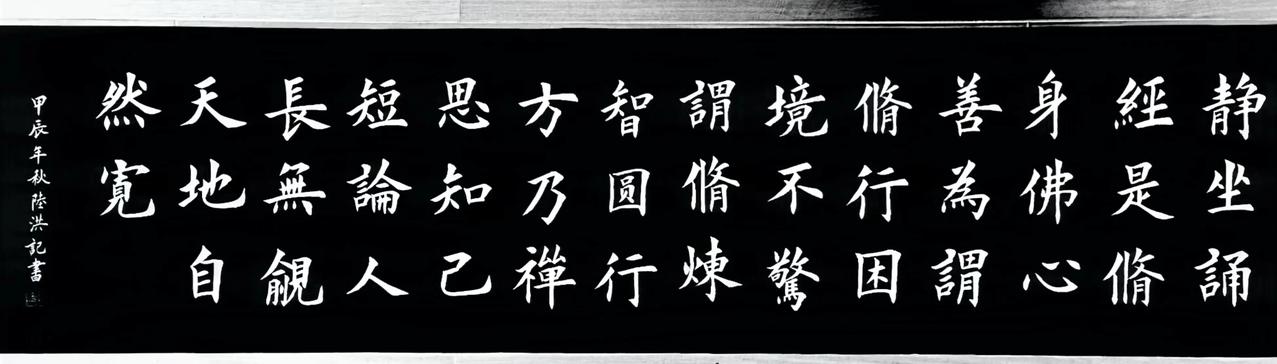 静坐誦
經是脩
身佛心
善為謂
脩行困
境不驚
謂脩煉
智圓行
方乃禪
思知己
短論人
長無覦
天地自
然寬
甲辰年秋陸洪記書